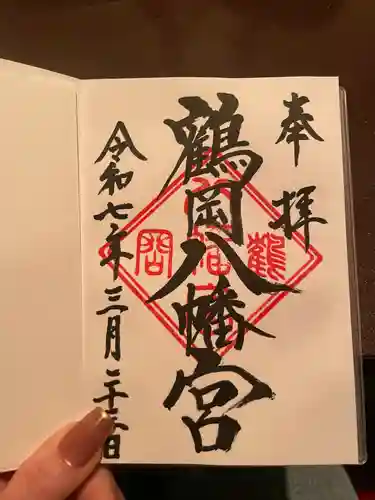 奉拝
鶴岡八幡宮
令和七年三月二十三日